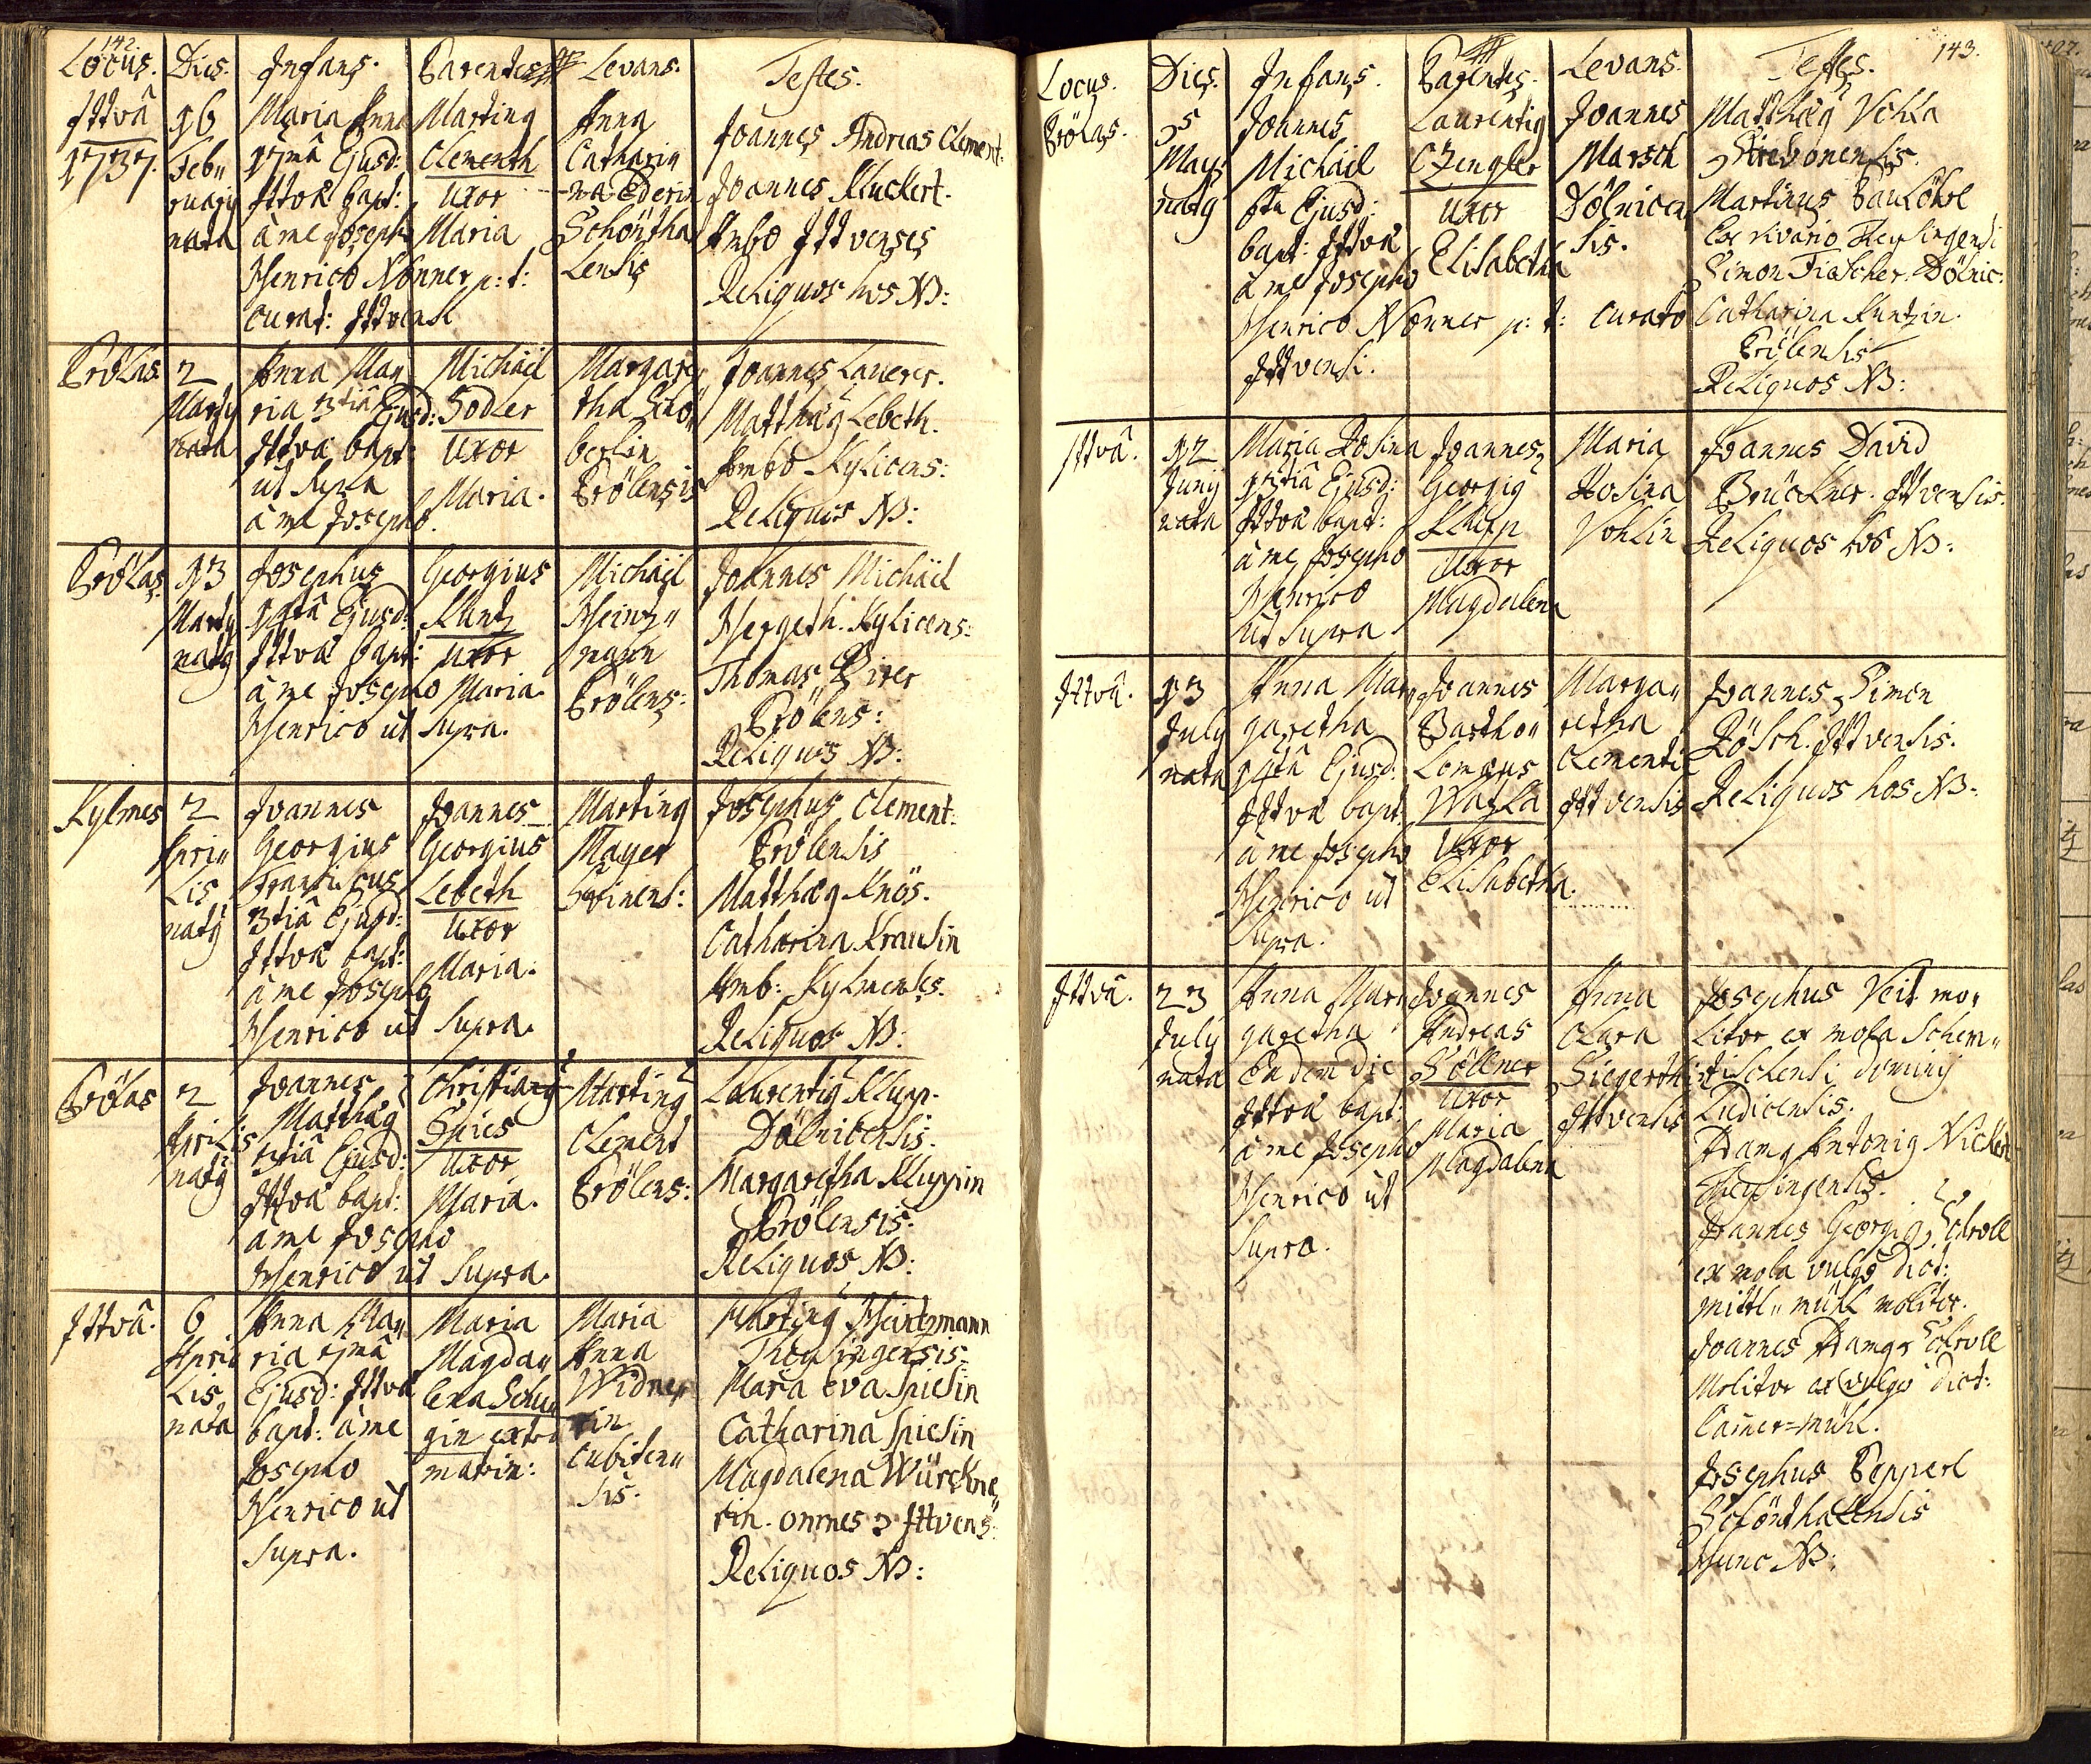 142.
Locus. Dies. Infans. Parentes Levans. Testes.
Ittvâ
1737.
16
Febr„
ruarij
nata
Maria Anna
17mâ Ejusd:
Ittvâ bapt:
à me Josepho
Henrico Nonner p: t:
curat: Ittvensi
Martinq
Clementh
Uxor
Maria
Anna
Catharin
-na Ederin
Schöntha
Lensis
Joannes Andreas Clement:
Joannes Kluckert.
Ambo Ittvenses
Reliquos hos NB:
Prölas
2
Martij
nata
Anna Ma„
ria 3tiâ Ejusd:
Ittvâ bapt:
ut supra
à me Josepho.
Michäel
Sodler
Uxor
Maria.
Margare„
tha
berlin
Prölensis
Joannes Lauerer.
Matthäq Lebeth.
Ambo Kylicens:
Reliquos NB:
Prölas
13
Martij
natq
Josephus
14tâ Ejusd:
Ittvâ bapt:
à me Josepho
Henrico ut supra.
Georgius
Kuntz
Uxor
Maria.
Michäel
Heintz„
mann
Prölens:
Joannes Michäel
Hergeth. Kylicens:
Thomas
Prölens:
Reliquos NB:
Kylmes
2
Apri„
Lis
natq
Joannes
Georgius
3tiâ Ejusd:
Ittvâ bapt:
à me Josepho
Henrico ut supra.
Joannes
Georgius
Lebeth
Uxor
Maria.
Martinq
Mayer
Josephus Clement:
Prölensis
Matthæq Knös.
Catharina Krausin
Amb: Kylmenses.
Reliquos NB:
Prölas
2
Aprilis
natq
Joannes
Matthäq
3tiâ Ejusd:
Ittvâ bapt:
à me Josepho
Henrico ut supra.
Christianq
Spies
Uxor
Maria.
Martinq
Clement
Prölens:
Laurentiq Klupp.
Dölnicensis.
Margaretha Kluppin
Prölensis:
Reliquos NB:
Ittvâ.
6
Apri
Lis
nata
Anna Ma„
ria 7mâ
Ejusd: Ittvâ
bapt: à me
Josepho
Henrico ut
supra.
Maria
Magda„
lena Schu
gin extra
matrim:
Maria
Anna
Widner
rin
Cubiten„
sis.
Martinq Heintzmann
Theysingensis:
Maria Eva Spiesin
Catharina Spiesin
Magdalena Würckne„
rin. omnes 3 Ittvens:
Reliquos NB:
143.
Locus. Dies. Infans. Parentes. Levans. Testes.
Prölas.
5
Maij
natq
Joannes
Michäel
6ta Ejusd:
bapt: Ittvâ
à me Josepho
Henrico Nonner p: t: curato
Ittvensi.
Laurentiq
Uxor
Elisabetha
Joannes
Marsch
Dölnicen
sis.
Matthæq Vohla
Martinus
ex rivario Theysingensi
Simon Fiescher. Dölnic:
Catharina Kuntzin.
Prölensis
Reliquos NB:
Ittvâ.
12
Junij
nata
Maria Rosina
13tiâ Ejusd:
Ittvâ bapt:
à me Josepho
Henrico
ut supra
Joannes
Georgiq
Klupp
Uxor
Magdalena
Maria
Rosina
Vohlin
Joannes David
Brückner. Ittvensis.
Reliquos hos NB:
Ittvâ.
13
July
nata
Anna Mar„
garetha
14tâ Ejusd:
Ittvâ bapt:
à me Josepho
Henrico ut
supra.
Joannes
Bartho„
Lomæus
Uxor
Elisabetha.
Marga„
retha
Clementi
Ittvensis
Joannes Simon
Rösch. Ittvensis.
Reliquos hos NB:
Ittvâ.
23
July
nata
Anna Mar„
garetha
Eadem die
Ittvâ bapt:
à me Josepho
Henrico ut
supra.
Joannes
Andreas
Söllner
Uxor
Maria
Magdalena
Anna
Clara
Siegerth
Ittvensis
Josephus Veit mo„
Litor ex mola Schem„
dominij
Ludicensis.
Adamq Antoniq
Theysingensis.
Joannes Georgiq Schroll
ex mola vulgo dict:
Mittl„ mühl molitor.
Joannes Adamq Schroll
Molitor ex vulgo dict:
Camer=mühl.
Josephus Pepperl
Schönthalensis
Hunc NB: